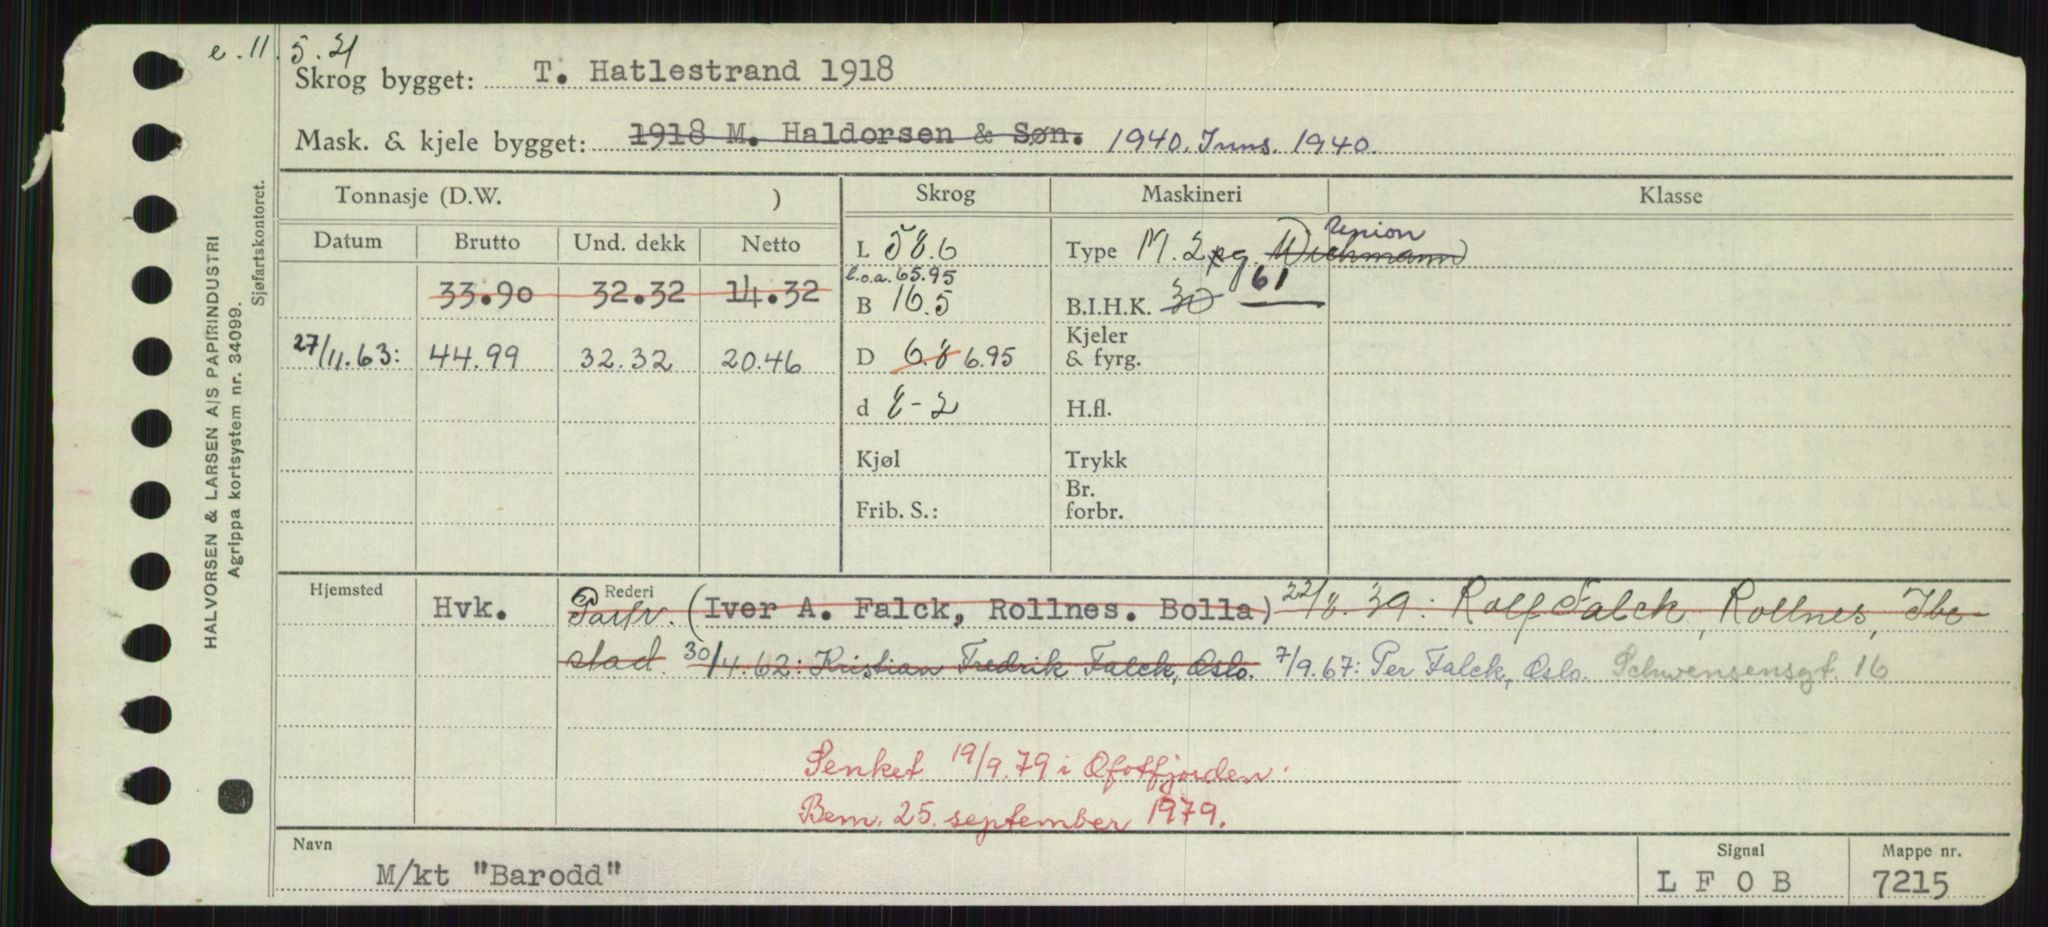 e. 11. 5. 21
Skrog bygget: T. Hatlestrand 1918
Mask. & kjele bygget: 1918 M. Haldorsen & Søn. 1940. Inns. 1940.
Tonnasje (D.W. ) Skrog Maskineri Klasse
Datum Brutto Und. dekk Netto
L 58.6 Type M. 2 pg. Wichmann Union
l.o.a. 65.95
33.90 32.32 14.32 B 16.5 B.I.H.K. 30 61
27/11.63: 44.99 32.32 20.46 D 6.8 6.95 Kjeler & fyrg.
d E-2 H.fl.
Kjøl Trykk
Frib. S.: Br. forbr.
Hjemsted Rederi
Hvk. Partr. (Iver A. Falck, Rollnes. Bolla) 22/8.39: Rolf Falck, Rollnes, Ibe-
stad. 30/4.62: Kristian Fredrik Falck, Oslo. 7/9.67: Per Falck, Oslo. Schwensensgt. 16
Senket 19/9.79 i Ofotfjorden.
Bem. 25. september 1979.
Navn Signal Mappe nr.
M/kt "Barodd" L F O B 7215
HALVORSEN & LARSEN A/S PAPIRINDUSTRI
Agrippa kortsystem nr. 34099.
Sjøfartskontoret.